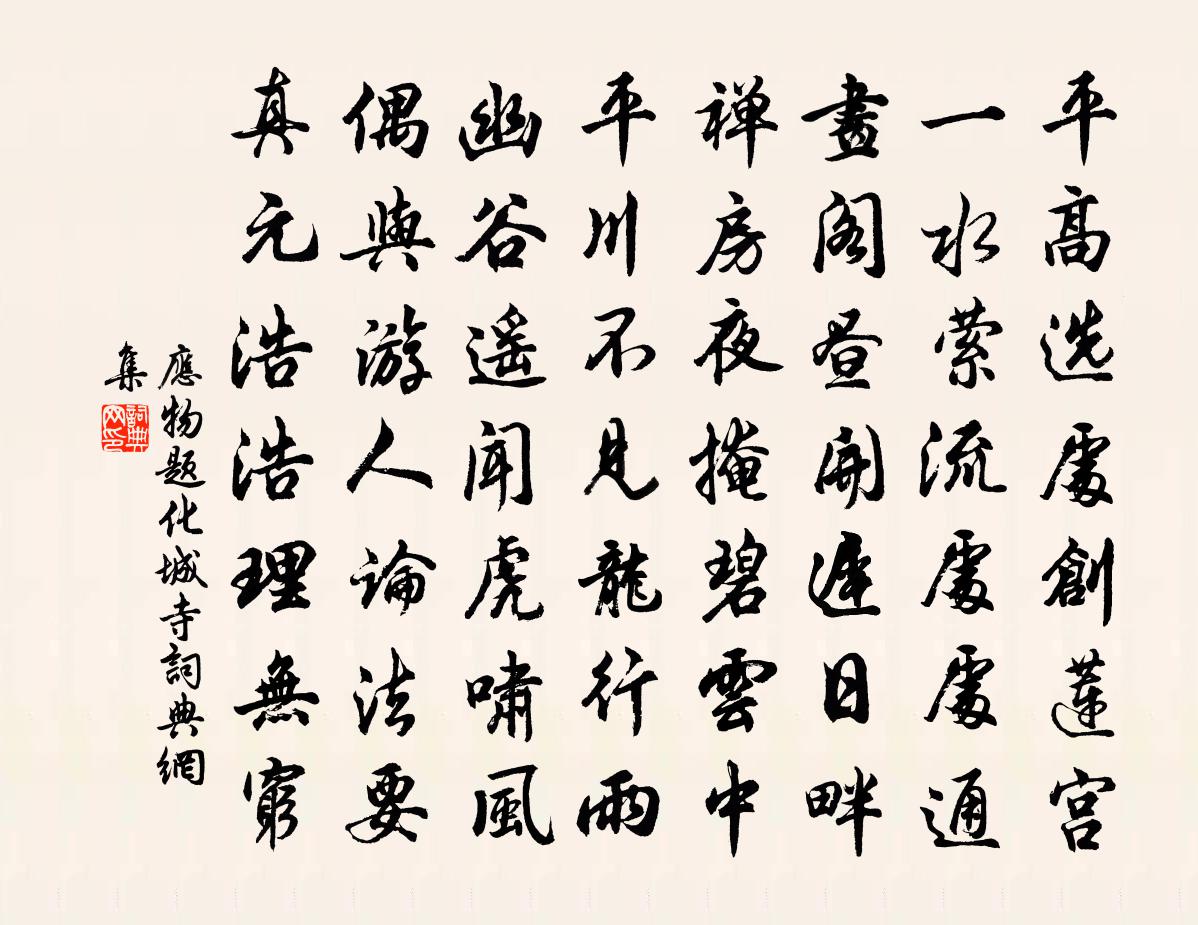 平高选處創蓮宫
一水萦流處處通
畫阁昼開遲日畔
禅房夜掩碧雲中
平川不見龍行雨
幽谷遥闻虎啸風
偶與游人論法要
真元浩浩理無窮
應物题化城寺詞典網
集
詞典网印